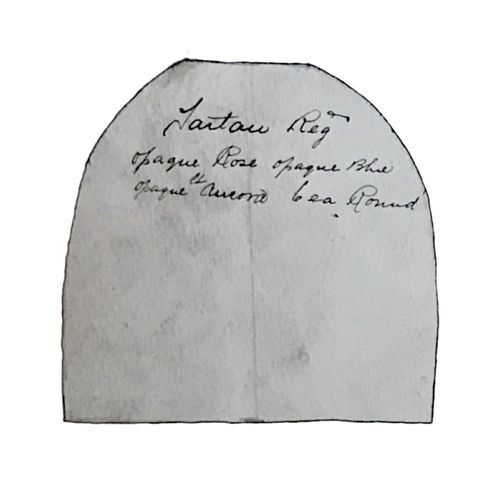 Tartan Regn
opaque Rose opaque Blue
opaque Lt 6 ea Round